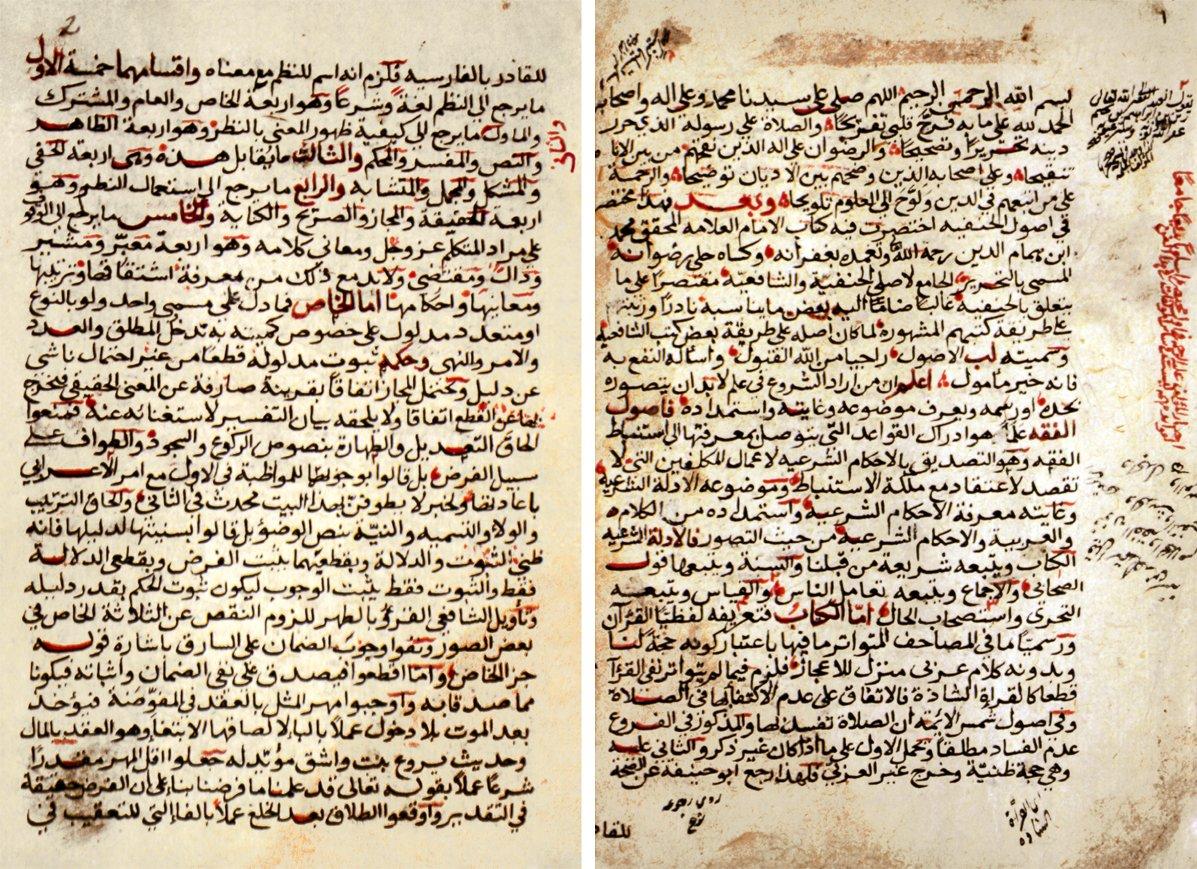 بسم الله الرحمن الرحيم اللهم صلي على سيدنا محمد وعلى اله واصحابه
الحمد لله على ما به فرج قلبي تفريحا والصلاة على رسوله الذي حرر
دينه تحريرا وتصحيحا والرضوان على اله الذين نقحهم من بين الانام
تنقيحا وعلى اصحابه الذين وضحهم بين الاديان توضيحا والرحمة
على من اتبعهم في الدين ولوح الى العلوم تلويحا وبعد فهذا مختصر
في اصول الحنفيه اختصرت فيه كتاب الامام العلامه المحقق محمد
ابن همام الدين رحمه الله وتغمده بغفرانه وكساه حلي رضوانه
المسمى بالتحرير الجامع لاصلي الحنفية والشافعية مقتصرا على ما
يتعلق بالحنفيه غالبا ضاما اليه بعض ما يناسبه نادرا ورتبته
على طريقة كتبهم المشهورة لما كان اصله على طريقة بعض كتب الشافعية
وسميته لب الاصول راجيا من الله القبول واساله النفع به
فانه خير مامول اعلم ان من اراد الشروع في علم لابد ان يتصوره
بحده او رسمه ويعرف موضوعه وغايته واستمداده فاصول
الفقه علما هو ادراك القواعد التي يتوصل بمعرفتها الى استنباط
الفقه وهو التصديق بالاحكام الشرعيه لاعمال المكلفين التي لا
تقصد لاعتقاد مع ملكة الاستنباط وموضوعه الادلة الشرعية
وغايته معرفة الاحكام الشرعية واستمداده من الكلام
والعربية والاحكام الشرعية من حيث التصور فالادلة الشرعيه
الكتاب ويتبعه شريعة من قبلنا والسنة ويتبعها قول
الصحابي والاجماع ويتبعه تعامل الناس والقياس ويتبعه
التحري واستصحاب الحال اما الكتاب فتعريفه لفظيا القران
ورسميا ما في المصاحف المتواتر ما فيها باعتبار كونه حجة لنا
وبدونه كلام عربي منزل للاعجاز فلزم فيما لم يتواتر نفي القران
قطعا كالقراة الشاذة فالاتفاق على عدم الاكتفا بها في الصلاة
وفي اصول شمس الائمة ان الصلاة تفسد بها والمذكور في الفروع
عدم الفساد مطلقا وحمل الاول على ما اذا كان غير ذكر والثاني عليه
وهي حجة ظنية وخرج غير العربي فلهذا رجع ابو حنيفة عن الصحة
للقادر
2
للقادر بالفارسيه فلزم انه اسم للنظم مع معناه واقسامهما خمسة الاول
ما يرجع الى النظم لغة وشرعا وهو اربعة الخاص والعام والمشترك
والماول ما يرجع الى كيفية ظهور المعنى بالنظم وهو اربعة الظاهر
والثاني
والنص والمفسر والمحكم والثالث ما يقابل هذه وهي اربعة الخفي
والمشكل والمجمل والمتشابه والرابع ما يرجع الى استعمال النظم وهو
اربعة الحقيقة والمجاز والصريح والكناية والخامس ما يرجع الى الوقوف
على مراد المتكلم عز وجل ومعاني كلامه وهو اربعة معبر ومشير
ودال ومقتضى ولابد مع ذلك من معرفة اشتقاقها وترتيبها
ومعانيها واحكامها اما الخاص فما دل على مسمى واحد ولو بالنوع
او متعدد مدلول على خصوص كميته به فدخل المطلق والعدد
والامر والنهي وحكمه ثبوت مدلوله قطعا من غير احتمال ناشي
عن دليل ويحتمل المجاز اتفاقا بقرينة صارفة عن المعنى الحقيقي فيخرج
عن القطع اتفاقا ولا يلحقه بيان التفسير لاستغنائه عنه فمنعوا
الحاق التعديل والطهارة بنصوص الركوع والسجود والطواف على
سبيل الفرض بل قالوا بوجوبها للمواظبة في الاول مع امر الاعرابي
باعادتها ولخبر لا يطوفن بهذا البيت محدث في الثاني والحاق الترتيب
والولاء والتسميه والنية بنص الوضؤ بل قالوا بسنيتها لدليلها فانه
ظني الثبوت والدلالة وبقطعيهما يثبت الفرض وبقطعي الدلالة
فقط والثبوت فقط يثبت الوجوب ليكون ثبوت الحكم بقدر دليله
وتاويل الشافعي القروء بالطهر للزوم النقص عن الثلاثة الخاص في
بعض الصور ونفوا وجوب الضمان على السارق باشارة قوله
جز الخاص واما اقطعوا فيصدق على نفي الضمان واثباته فيكونا
مما صدقاته واوجبوا مهر المثل بالعقد في المفوضة فيؤخذ
بعد الموت بلا دخول عملا بالبا لالصاقها الابتغا وهو العقد بالمال
وحديث بروع بنت واشق مؤيد له جعلوا اقل المهر مقدرا
شرعا عملا بقوله تعالى قد علمنا ما فرضنا بنا على ان الفرض حقيقة
في التقدير واوقعوا الطلاق بعد الخلع عملا بالفا التي للتعقيب في